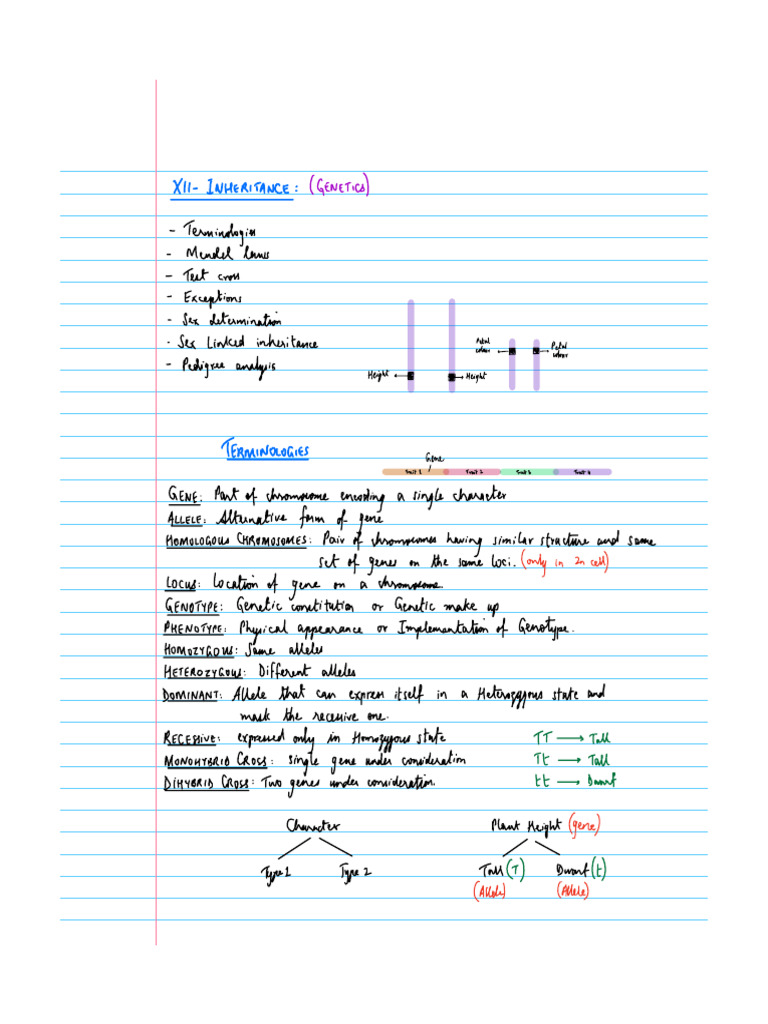 XII- INHERITANCE: (GENETICS)
- Terminologies
- Mendel laws
- Test cross
- Exceptions
- Sex determination
- Sex Linked inheritance
- Pedigree analysis
Petal colour
Petal colour
Height
Height
TERMINOLOGIES
Gene
Trait 1 Trait 2 Trait 3 Trait 4
GENE: Part of chromosome encoding a single character
ALLELE: Alternative form of gene
HOMOLOGOUS CHROMOSOMES: Pair of chromosomes having similar structure and same
set of genes on the same loci. (only in 2n cell)
LOCUS: Location of gene on a chromosome.
GENOTYPE: Genetic constitution or Genetic make up
PHENOTYPE: Physical appearance or Implementation of Genotype.
HOMOZYGOUS: Same alleles
HETEROZYGOUS: Different alleles
DOMINANT: Allele that can express itself in a Heterozygous state and
mask the recessive one.
RECESSIVE: expressed only in Homozygous state TT → Tall
MONOHYBRID CROSS: Single gene under consideration Tt → Tall
DIHYBRID CROSS: Two genes under consideration. tt → Dwarf
Character Plant Height (gene)
Type 1 Type 2 Tall (T) Dwarf (t)
(Allele) (Allele)